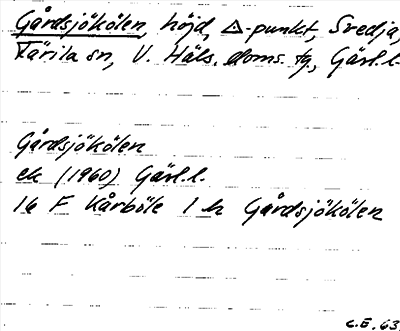 Gårdsjökölen, höjd, △-punkt, Svedja,
Färila sn, V. Häls. doms. tg, Gävl. l.
Gårdsjökölen
ek (1960) Gävl. l.
16 F Kårböle 1 h Gårdsjökölen
C.E. 63.